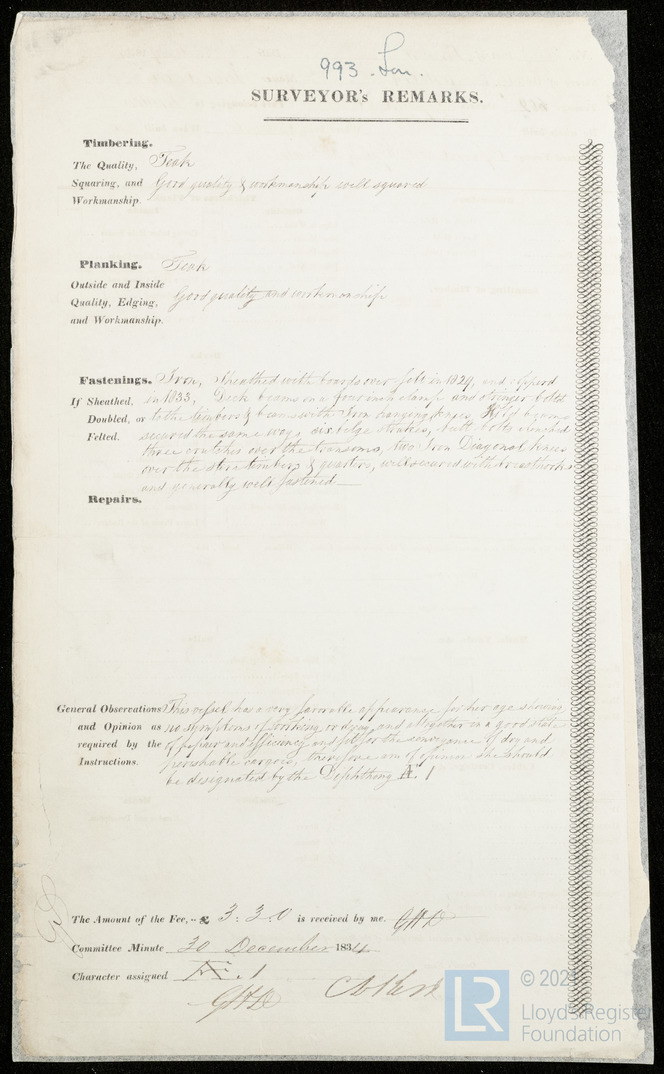 993 Lon.
SURVEYOR's REMARKS.
Timbering.
The Quality, Teak
Squaring, and Good quality & workmanship well squared
Workmanship.
Planking. Teak
Outside and Inside
Quality, Edging, Good quality and workmanship
and Workmanship.
Fastenings. Iron, Sheathed with boards over felt in 1829, and
If Sheathed, in 1833, Deck beams on a four inch clamp and stringer bolted
Doubled, or to the timbers & beams with Iron hanging knees, Hold beams
Felted. secured the same way, six bilge strakes, butt bolts clenched
three crutches over the transoms, two Iron Diagonal knees
over the stern timbers & quarters, well secured with breasthooks
and generally well fastened
Repairs.
General Observations This vessel has a very favorable appearance for her age shewing
and Opinion as no symptoms of working or and altogether in a good state
required by the of repair and efficiency and fit for the conveyance of dry and
Instructions. perishable cargoes, therefore am of opinion she should
be designated by the A. 1
The Amount of the Fee, .. £ 3 : 3 : 0 is received by me.
Committee Minute 30 December 1834
Character assigned 1
LR
© 202
Lloyd's Register
Foundation